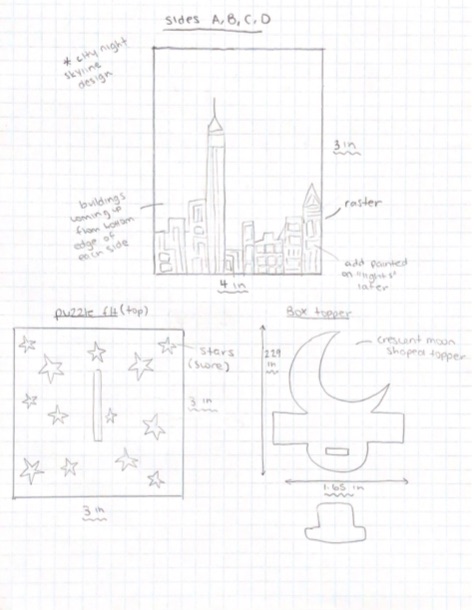 sides A, B, C, D
* city night
skyline
design
3 in
buildings
coming up
from bottom
edge of
each side
raster
add painted
on "lights"
later
4 in
puzzle fit (top)
stars
(score)
3 in
3 in
Box topper
crescent moon
shaped topper
2.29
in
1.65 in